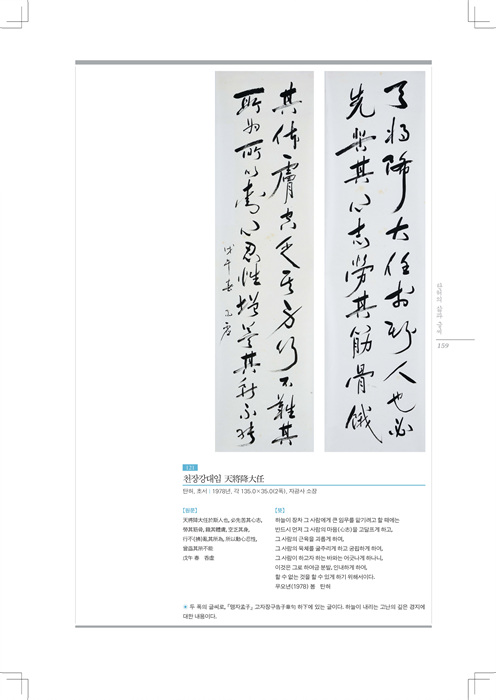 天將降大任於斯人也必
先苦其心志勞其筋骨餓
其体膚空乏其身行不其
所為所以動心忍性增益其所不能
戊午春 呑虛
탄허의
159
121
천장강대임 天將降大任
탄허, 초서 : 1978년, 각 135.0×35.0(2폭), 자광사 소장
[원문]
天將降大任於斯人也, 必先苦其心志,
勞其筋骨, 餓其體膚, 空乏其身,
行不(拂)亂其所為, 所以動心忍性,
曾益其所不能
戊午 春 呑虛
[뜻]
하늘이 장차 그 사람에게 큰 임무를 맡기려고 할 때에는
반드시 먼저 그 사람의 마음(心志)을 고달프게 하고,
그 사람의 근육을 괴롭게 하며,
그 사람의 육체를 굶주리게 하고 궁핍하게 하며,
그 사람이 하고자 하는 바와는 어긋나게 하나니,
이것은 그로 하여금 분발, 인내하게 하며,
할 수 없는 것을 할 수 있게 하기 위해서이다.
무오년(1978) 봄 탄허
★ 두 폭의 글씨로, 『맹자孟子』 고자장구告子章句 하下에 있는 글이다. 하늘이 내리는 고난의 깊은 경지에
대한 내용이다.